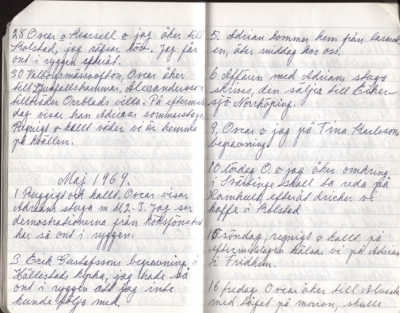 28 Oscar o jag åker till
Rolstad, jag räfsar löv. Jag får
ont i ryggen efteråt.
30 Valborgsmässoafton, Oscar åker
till
tittar
villa. På efterm
dag visar han Adrians sommarstuga
Regnigt o kallt väder vi är hemma
på kvällen.
Maj 1969.
1 Ruggigt och kallt. Oscar visar
Adrians stuga m M 2-3. Jag ser
demostrationerna från
har så ont i ryggen.
3 Erik Gustafssons begravning i
Hällestads kyrka, jag hade så
ont i ryggen att jag inte
kunde följa med.
5, Adrian kommer hem från lasaret
en, äter middag hos oss.
6 Affären med Adrians stuga
skrives, den säljes till
sjö Norrköping.
9, Oscar o jag på Tina Karlssons
begravning
10 lördag O. o jag åker omkring
i skall ta reda på
efteråt dricker vi
kaffe i Rolstad
15 söndag, regnigt o kallt på
eftermiddagen hälsar vi på Adrian
i Fridhem.
16 fredag Oscar åker till
med tåget på morron, skulle